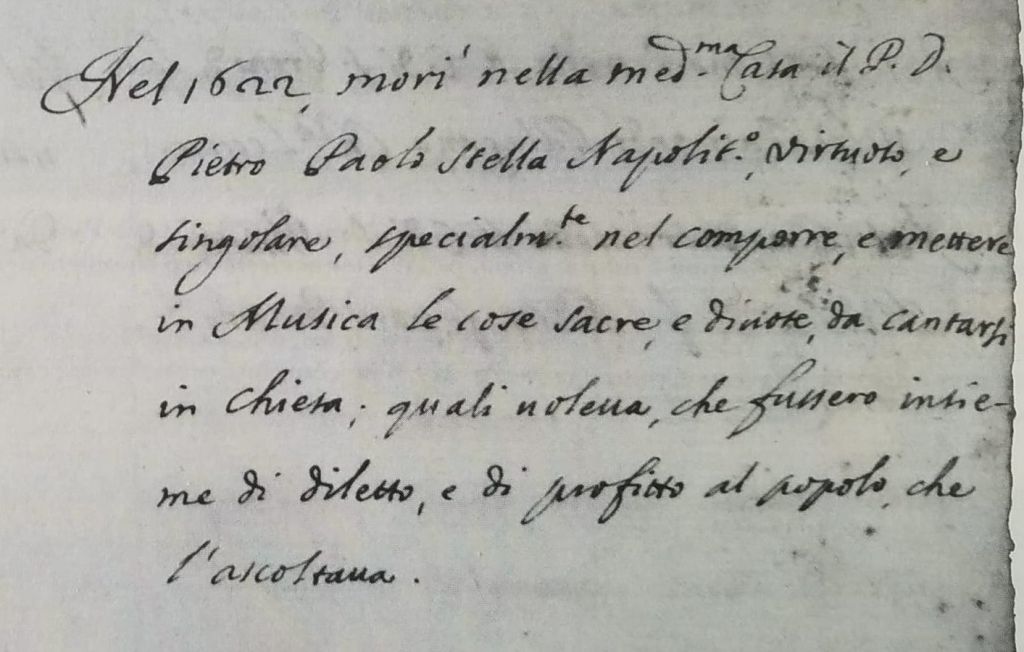 Nel 1622, morì nella med.ma Casa il P. D.
Pietro Paolo Stella Napolit.o, virtuoso, e
singolare, specialm.te nel comporre, e mettere
in Musica le cose sacre, e divote, da cantarsi
in Chiesa; quali voleva, che fussero insie-
me di diletto, e di profitto al popolo, che
l'ascoltava.